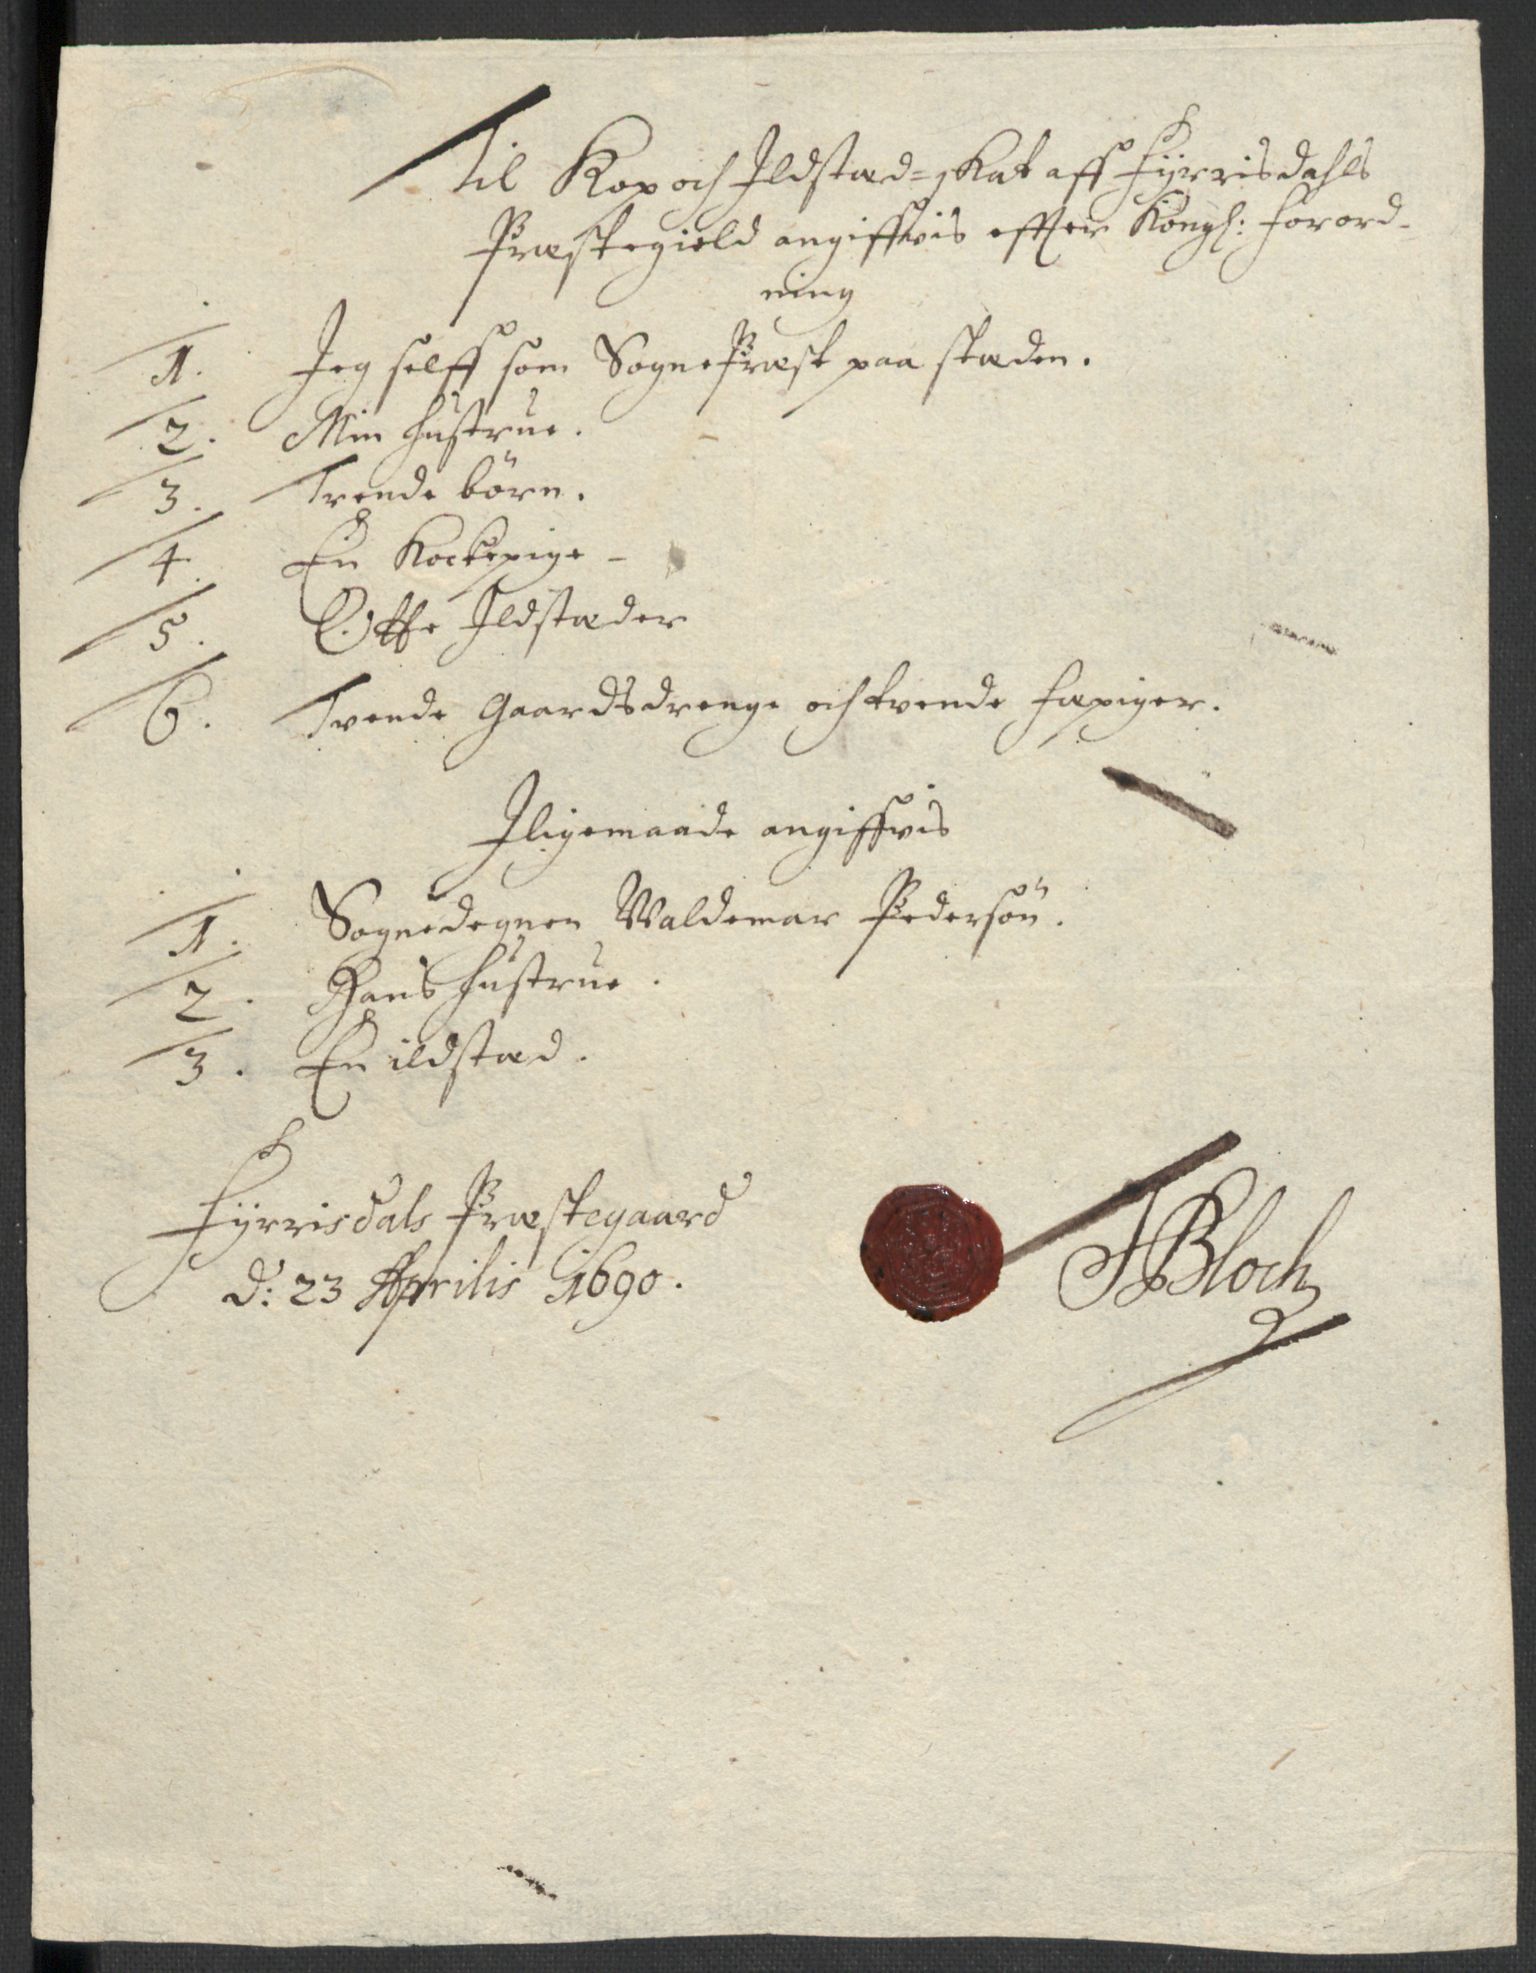 Til Kop och Ildstæd=skat aff Fyrrisdahls
Præstegield angiffvis effter Kongl: Forord-
ning
1. Jeg selff som SognePræst paa stæden.
2. Min Hustrue.
3. Trende börn.
4. En Kockepige -
5. Otte Ildstæder
6. Tvende Gaardsdrenge och tvende Fæpiger.
Iligemaade angiffvis
1. Sognedegnen Waldemar Pedersön.
2. Hans Hustrue.
3. En ildstæd.
Fyrrisdals Præstegaard
d: 23 Aprilis 1690.
HBloch